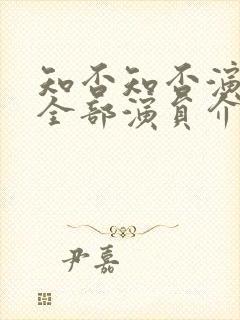 知否知否演
全部演员介
尹嘉